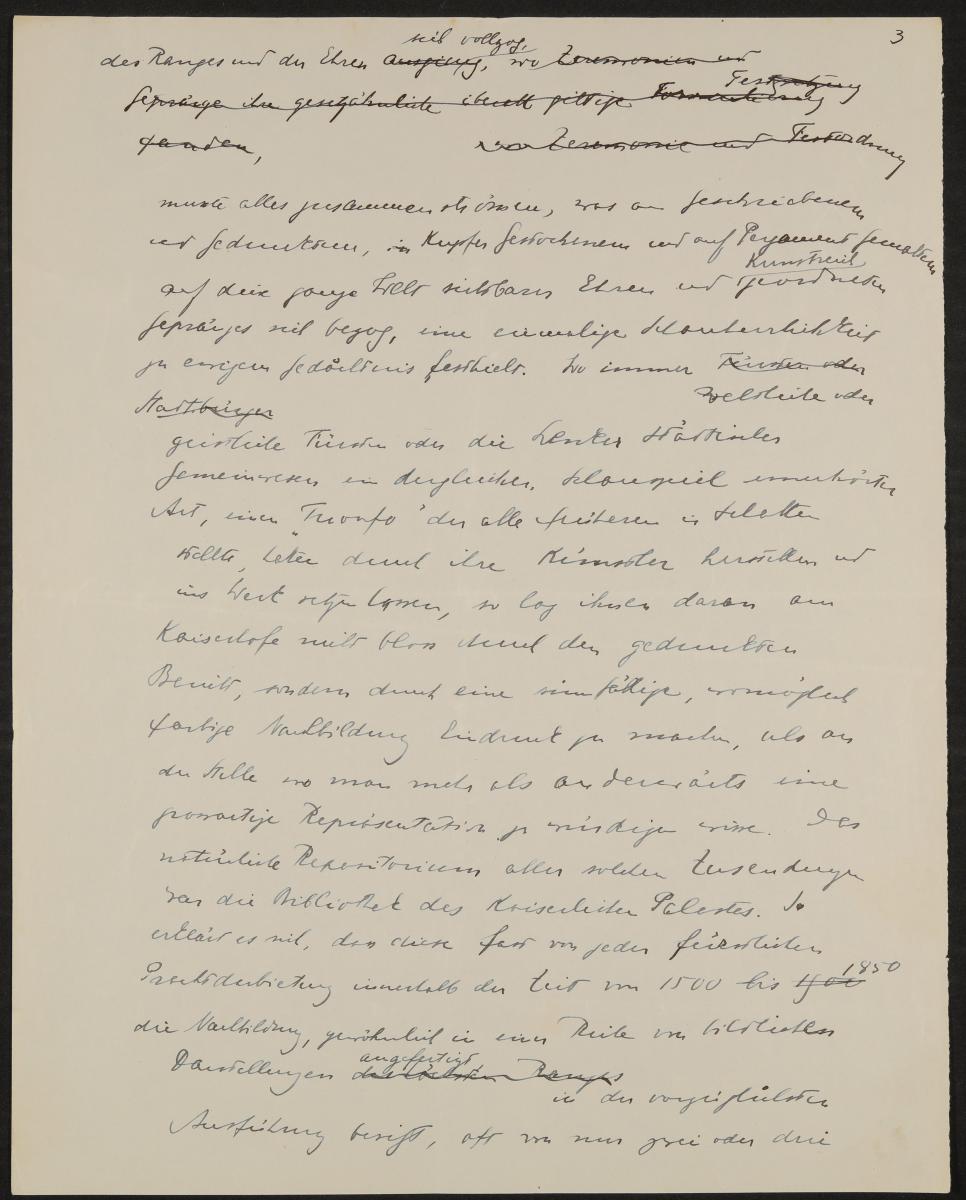 3
sich vollzog,
des Ranges und der Ehren ausging, wo Zeremonien und
Festsetzung
Gepränge ihre gesetzähnliche überall giltige Formulierung
fanden, wo Zeremonie und Festordnung
musste alles zusammenströmen, was an geschriebenem
und gedrucktem, in Kupfer gestochenem und auf Pergament gemaltem
kunstreich
auf diese ganze Welt sichtbarer Ehren und geordneten
Gepränges sich bezog, eine einmalige Schauherrlichkeit
zu ewigem Gedächtnis festhielt. Wo immer Fürsten oder
Stadtbürger weltliche oder
geistliche Fürsten oder die Lenker städtischer
Gemeinwesen ein dergleichen Schauspiel unerhörter
Art, einen "Trionfo" der alle früheren in Schatten
stellte, hatten durch ihre Künstler herstellen und
ins Werk setzen lassen, so lag ihnen daran am
Kaiserhofe nicht bloss durch den gedruckten
Bericht, sondern durch eine sinnfällige, womöglich
farbige Nachbildung Eindruck zu machen, als an
der Stelle wo man mehr als anderwärts eine
grossartige Repräsentation zu würdigen wisse. Das
natürliche Repositorium aller solchen Zusendungen
war die Bibliothek des Kaiserlichen Palastes. So
erklärt es sich, dass diese fast von jeder fürstlichen
1850
Prachtdarbietung innerhalb der Zeit von 1500 bis
die Nachbildung, gewöhnlich in einer Reihe von bildlichen
angefertigt
Darstellungen des höchsten Ranges
in der vorzüglichsten
Ausführung besitzt, oft von nur zwei oder drei